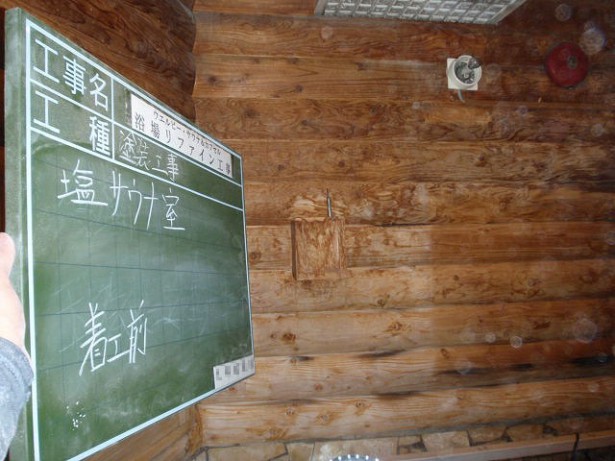 工事名
ウェルビー・サウナ&カプセル
浴場リファイン工事
工種 塗装工事
塩サウナ室
着工前